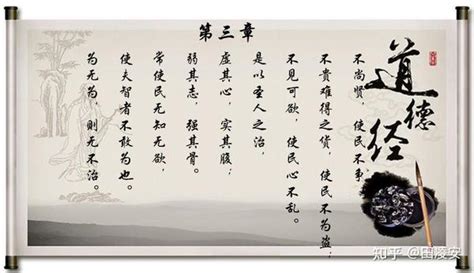 道德经
第三章
不尚贤，使民不争；
不贵难得之货，使民不为盗；
不见可欲，使民心不乱。
是以圣人之治，
虚其心，实其腹；
弱其志，强其骨。
常使民无知无欲，
使夫智者不敢为也。
为无为，则无不治。
知乎 @国凌安